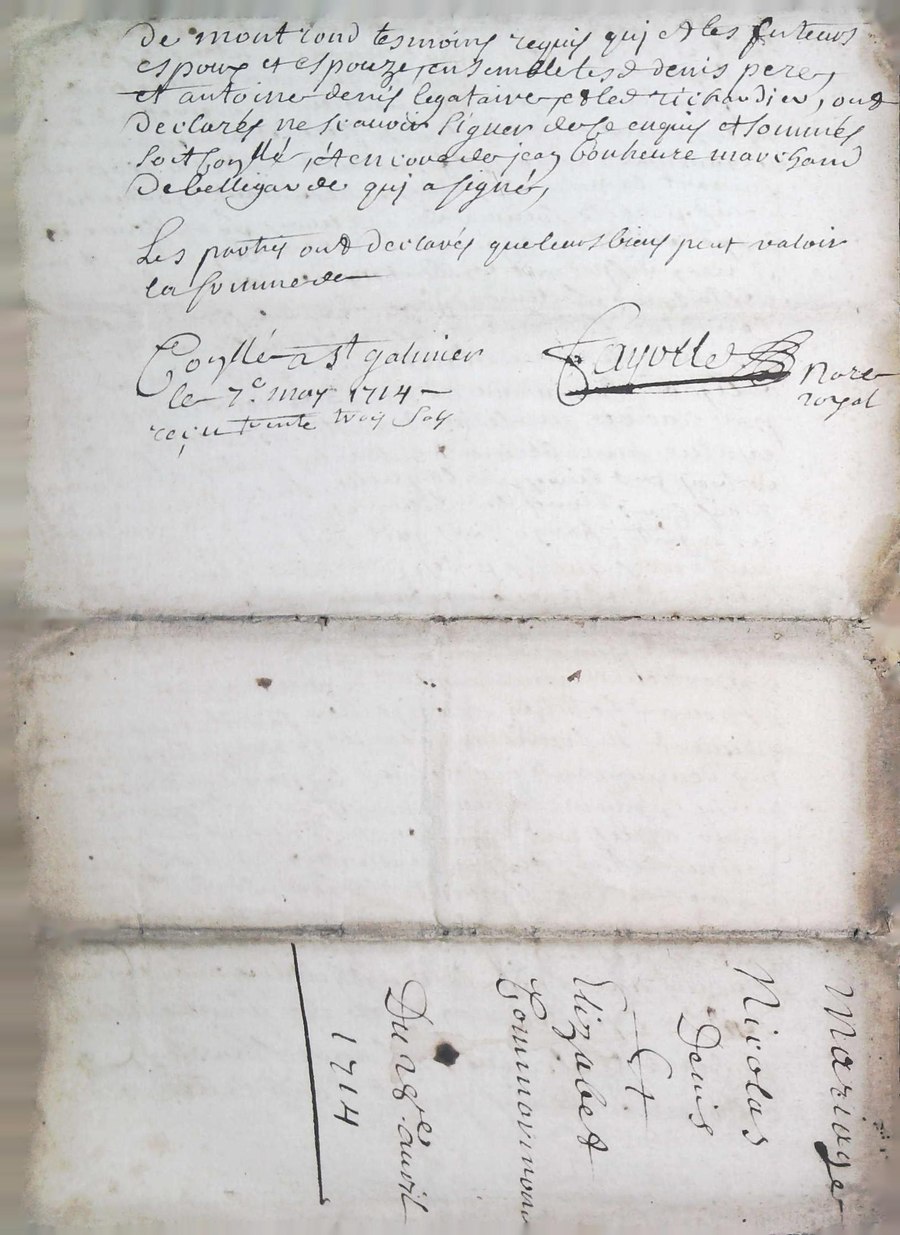 de montrond tesmoins requis qui et les futeurs
espoux et espouze, ensemble lesd denis pere,
et antoine denis legataire, et led richardier, ont
declarés ne scavoir signer de ce enquis et sommés
soit conllé, et encore de jean bonheure marchand
de belligarde qui a signé,
Les parties ont declarés que leurs biens peut valoir
la somme de
Conllé a st galmier
le 7e may 1714
reçu trente trois sols
Fayolle Nore
royal
Mariage
Nicolas
Denis
Et
Elizabet
Du 28e auvril
1714